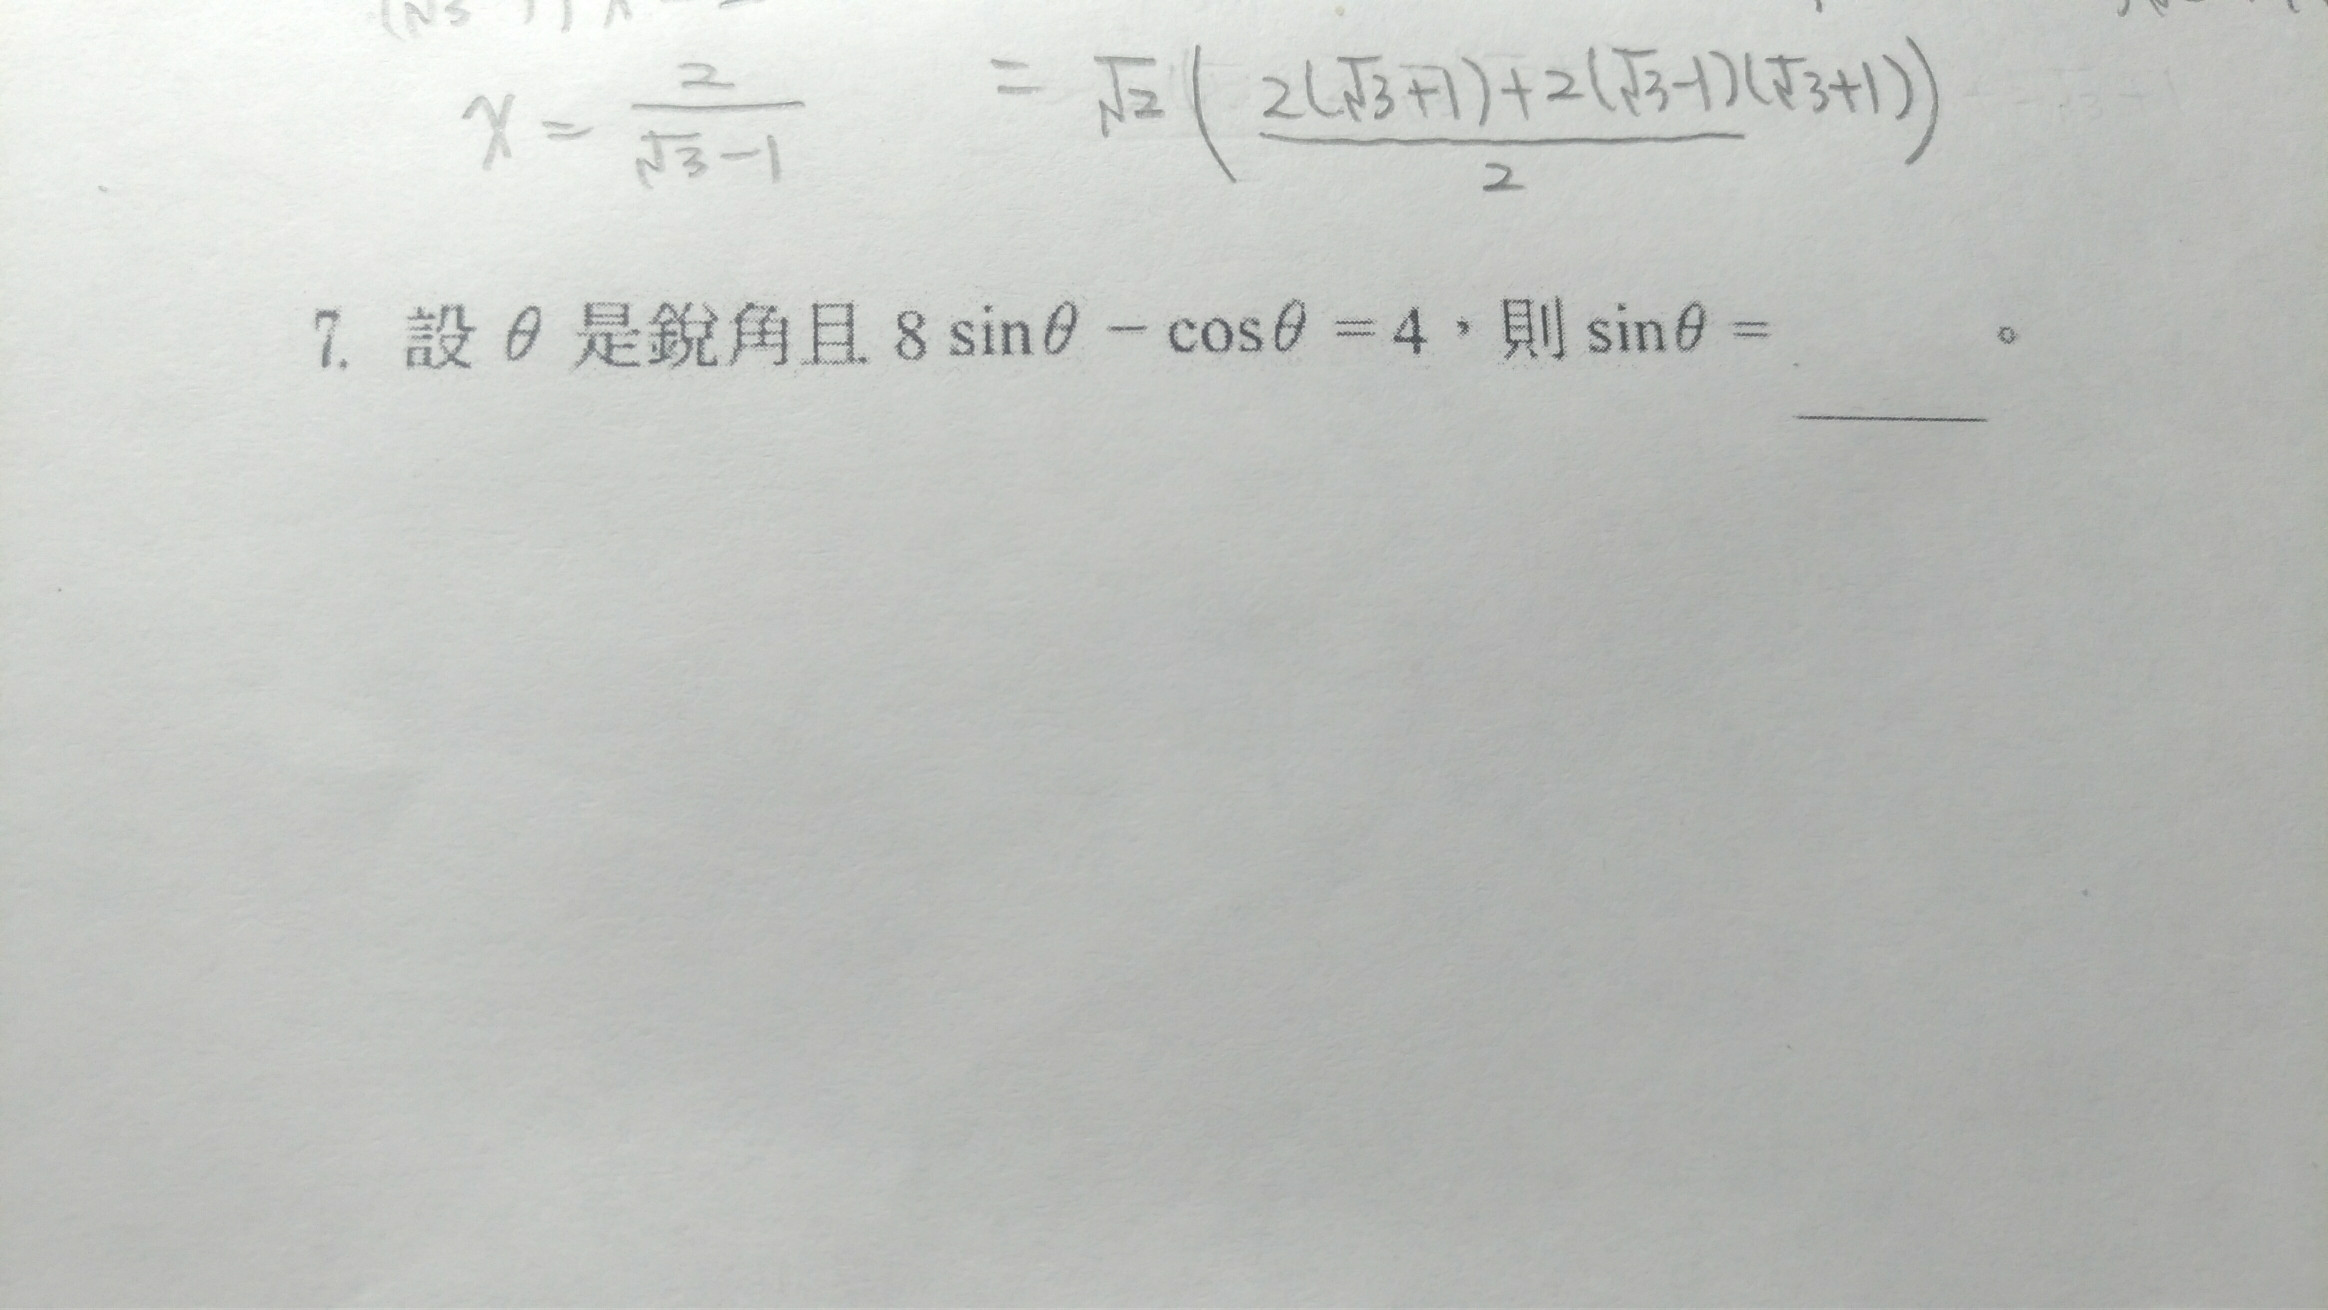 x = 2/(√3-1) = √2 ( (2(√3+1)+2(√3-1)(√3+1))/2 )
7. 設 θ 是銳角且 8 sinθ − cosθ = 4，則 sinθ = ____。